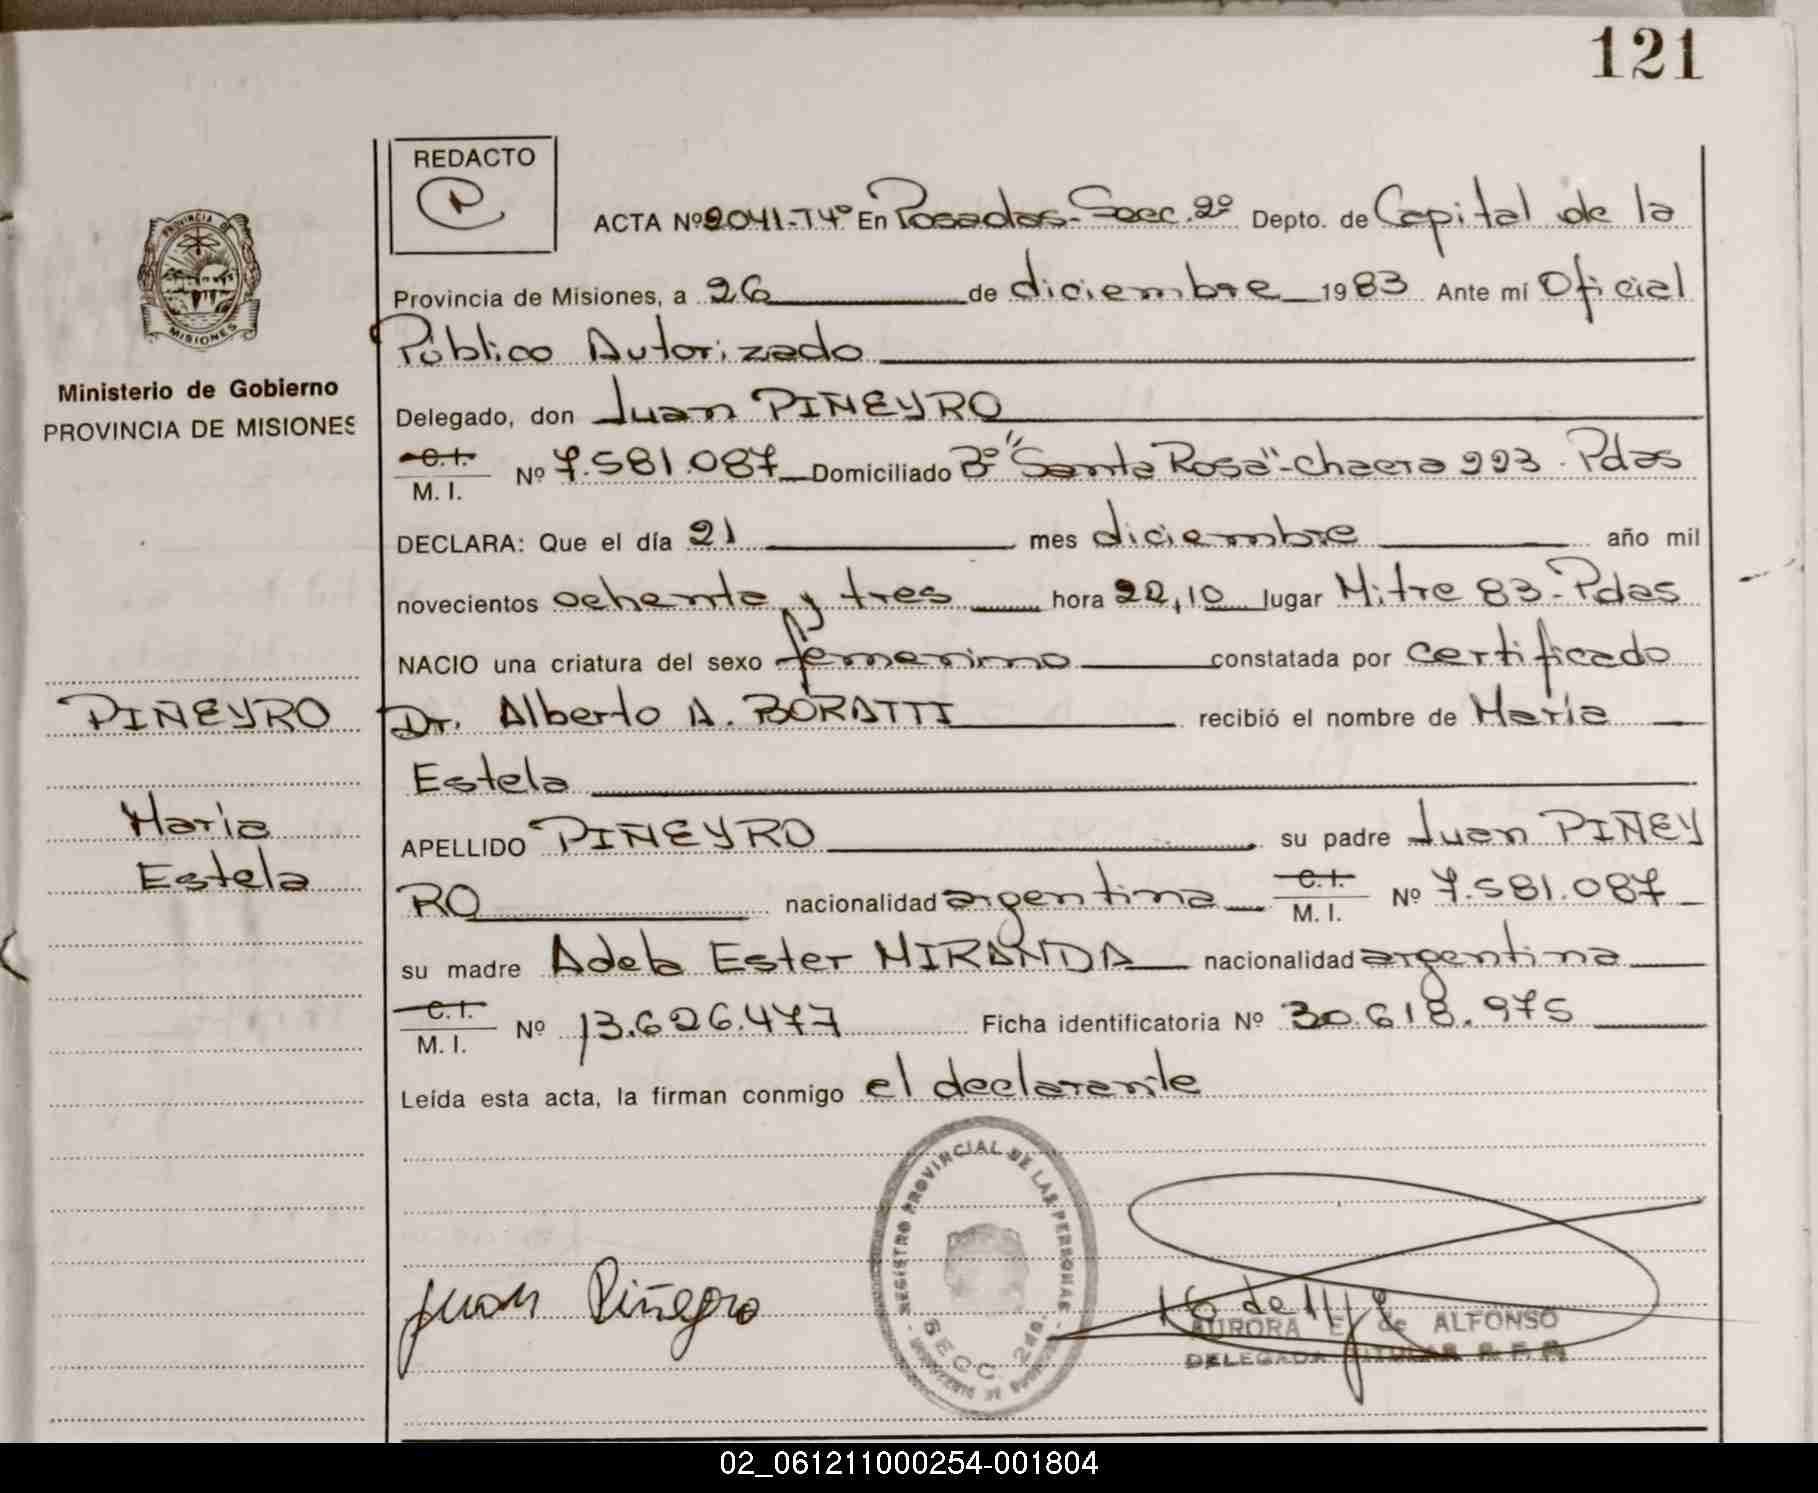 121
REDACTO
ACTA Nº 2041-T4º En Posadas-Secc.2º Depto. de Capital de la
Provincia de Misiones, a 26 de diciembre 1983 Ante mí Oficial
Público Autorizado
Delegado, don Juan PIÑEYRO
C.I.
M. I. Nº 7.581.087 Domiciliado Bº "Santa Rosa"-chacra 223. Pdas
DECLARA: Que el día 21 mes diciembre año mil
novecientos ochenta y tres hora 22,10 lugar Mitre 83-Pdas
NACIO una criatura del sexo femenino constatada por certificado
Dr. Alberto A. BORATTI recibió el nombre de María
Estela
APELLIDO PIÑEYRO su padre Juan PIÑEY
RO nacionalidad argentina C.I. M. I. Nº 7.581.087
su madre Adela Ester MIRANDA nacionalidad argentina
C.I.
M. I. Nº 13.626.477 Ficha identificatoria Nº 30.618.975
Leída esta acta, la firman conmigo el declarante
PROVINCIA DE
MISIONES
Ministerio de Gobierno
PROVINCIA DE MISIONES
PIÑEYRO
María
Estela
Juan Piñeyro
REGISTRO PROVINCIAL DE LAS PERSONAS
SECC. 2da.
AURORA E. de ALFONSO
DELEGADA TITULAR R.P.P.
02_061211000254-001804